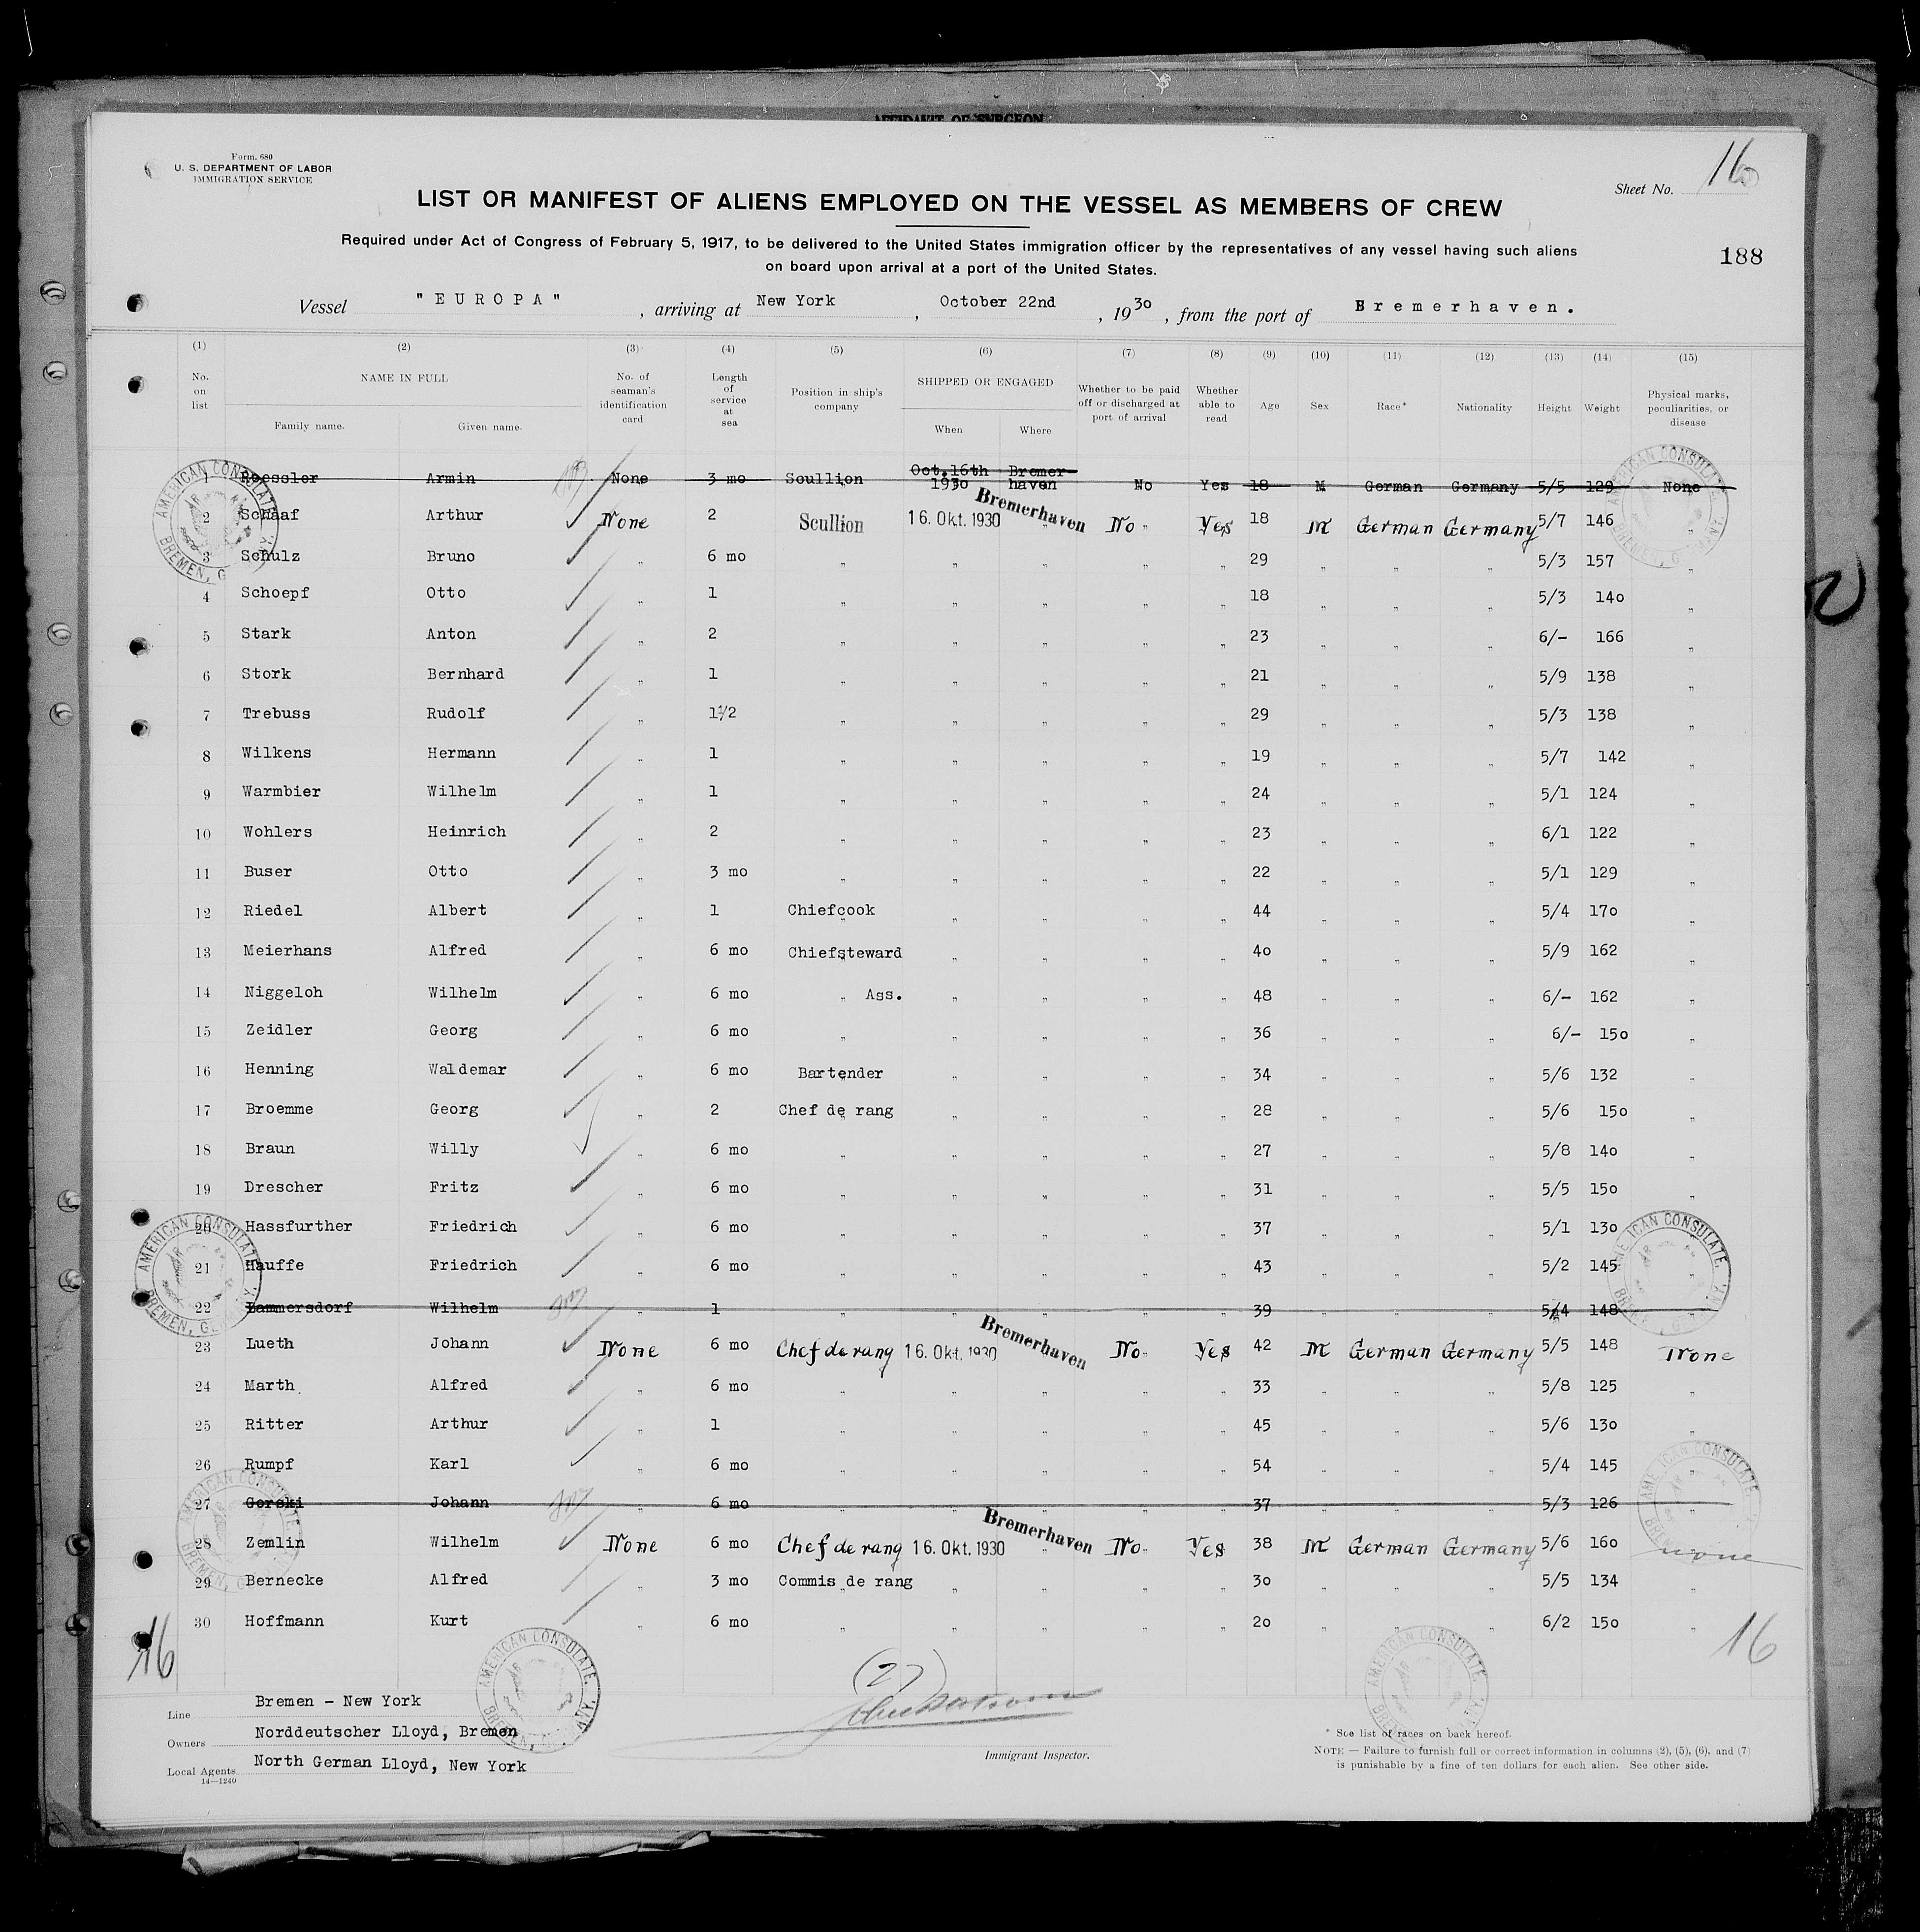 AFFIDAVIT OF SURGEON
Form. 680
U. S. DEPARTMENT OF LABOR
IMMIGRATION SERVICE
Sheet No. 16
LIST OR MANIFEST OF ALIENS EMPLOYED ON THE VESSEL AS MEMBERS OF CREW
Required under Act of Congress of February 5, 1917, to be delivered to the United States immigration officer by the representatives of any vessel having such aliens
on board upon arrival at a port of the United States.
188
Vessel "EUROPA", arriving at New York, October 22nd, 1930, from the port of Bremerhaven.
(1) (2) (3) (4) (5) (6) (7) (8) (9) (10) (11) (12) (13) (14) (15)
No. on list NAME IN FULL Family name. Given name. No. of seaman's identification card Length of service at sea Position in ship's company SHIPPED OR ENGAGED When Where Whether to be paid off or discharged at port of arrival Whether able to read Age Sex Race* Nationality Height Weight Physical marks, peculiarities, or disease
1 Roessler Armin None 3 mo Scullion Oct.16th 1930 Bremerhaven No Yes 18 M German Germany 5/5 129 None
2 Schaaf Arthur None 2 Scullion 16. Okt. 1930 Bremerhaven No Yes 18 M German Germany 5/7 146 "
3 Schulz Bruno " 6 mo " " " " " 29 " " " 5/3 157 "
4 Schoepf Otto " 1 " " " " " 18 " " " 5/3 140 "
5 Stark Anton " 2 " " " " " 23 " " " 6/- 166 "
6 Stork Bernhard " 1 " " " " " 21 " " " 5/9 138 "
7 Trebuss Rudolf " 1½ " " " " " 29 " " " 5/3 138 "
8 Wilkens Hermann " 1 " " " " " 19 " " " 5/7 142 "
9 Warmbier Wilhelm " 1 " " " " " 24 " " " 5/1 124 "
10 Wohlers Heinrich " 2 " " " " " 23 " " " 6/1 122 "
11 Buser Otto " 3 mo " " " " " 22 " " " 5/1 129 "
12 Riedel Albert " 1 Chiefcook " " " " 44 " " " 5/4 170 "
13 Meierhans Alfred " 6 mo Chiefsteward " " " " 40 " " " 5/9 162 "
14 Niggeloh Wilhelm " 6 mo " Ass. " " " " 48 " " " 6/- 162 "
15 Zeidler Georg " 6 mo " " " " " 36 " " " 6/- 150 "
16 Henning Waldemar " 6 mo Bartender " " " " 34 " " " 5/6 132 "
17 Broemme Georg " 2 Chef de rang " " " " 28 " " " 5/6 150 "
18 Braun Willy " 6 mo " " " " " 27 " " " 5/8 140 "
19 Drescher Fritz " 6 mo " " " " " 31 " " " 5/5 150 "
20 Hassfurther Friedrich " 6 mo " " " " " 37 " " " 5/1 130 "
21 Hauffe Friedrich " 6 mo " " " " " 43 " " " 5/2 145 "
22 Lammersdorf Wilhelm " 1 " " " " " 39 " " " 5/4 148 "
23 Lueth Johann None 6 mo Chef de rang 16. Okt. 1930 Bremerhaven No Yes 42 M German Germany 5/5 148 None
24 Marth Alfred " 6 mo " " " " " 33 " " " 5/8 125 "
25 Ritter Arthur " 1 " " " " " 45 " " " 5/6 130 "
26 Rumpf Karl " 6 mo " " " " " 54 " " " 5/4 145 "
27 Gorski Johann " 6 mo " " " " " 37 " " " 5/3 126 "
28 Zemlin Wilhelm None 6 mo Chef de rang 16. Okt. 1930 Bremerhaven No Yes 38 M German Germany 5/6 160 None
29 Bernecke Alfred " 3 mo Commis de rang " " " " 30 " " " 5/5 134 "
30 Hoffmann Kurt " 6 mo " " " " " 20 " " " 6/2 150 "
16 16
(27)
AMERICAN CONSULATE,
BREMEN, GERMANY.
Line Bremen - New York
Owners Norddeutscher Lloyd, Bremen
Local Agents North German Lloyd, New York
14—1240
Immigrant Inspector.
* See list of races on back hereof.
NOTE — Failure to furnish full or correct information in columns (2), (5), (6), and (7)
is punishable by a fine of ten dollars for each alien. See other side.